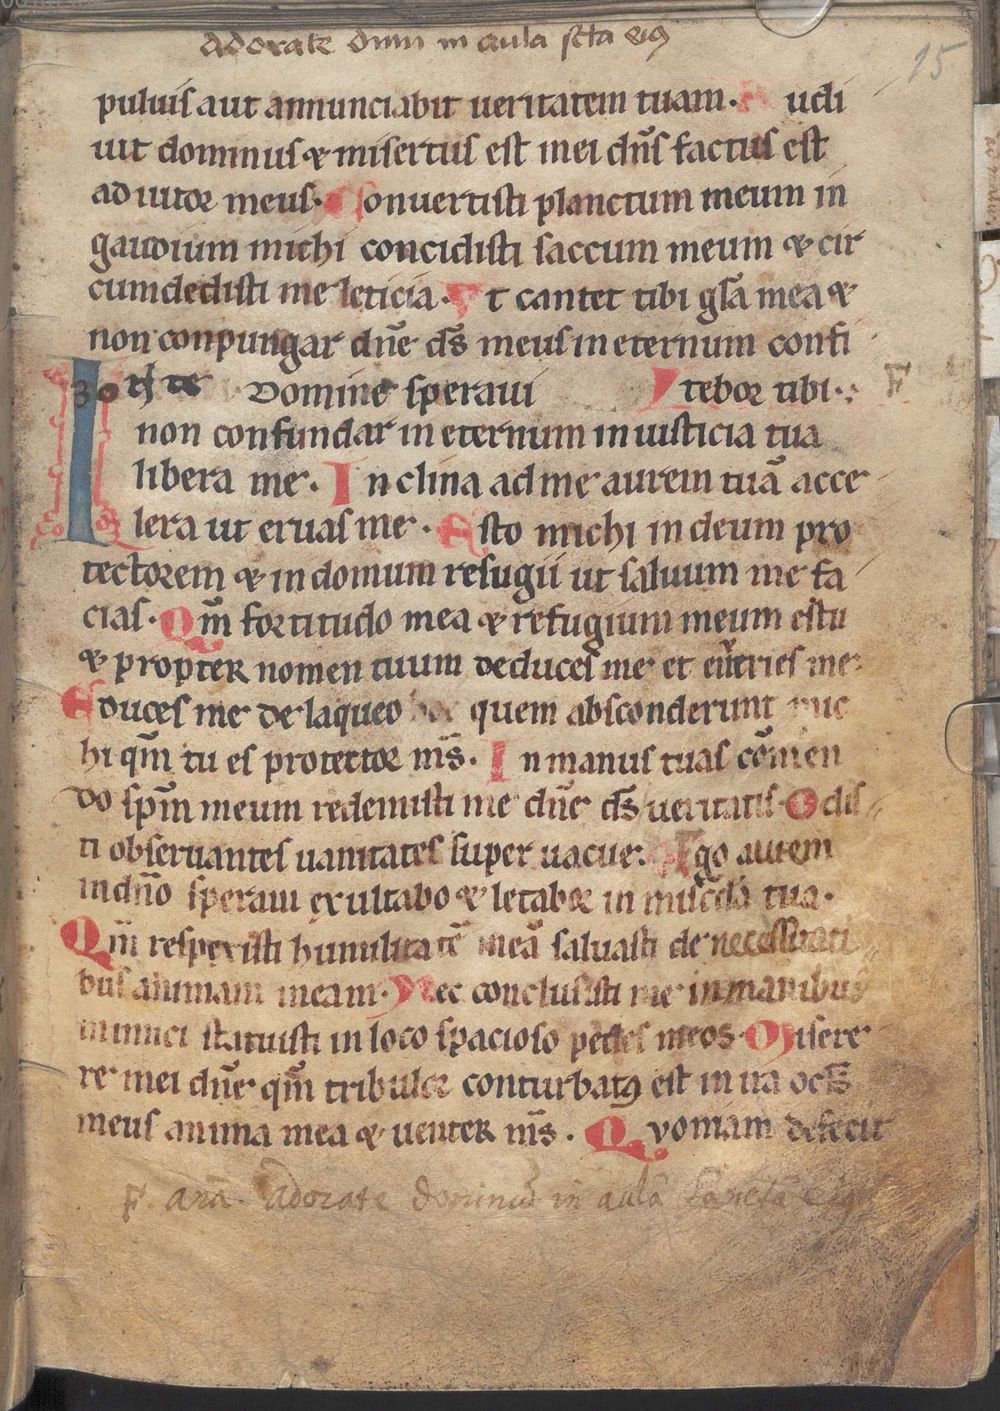 Adorate dnm in aula scta eiꝯ
15
puluis aut annunciabit ueritatem tuam. udi
uit dominus ⁊ misertus est mei dn̄s factus est
adiutor meus. Conuertisti planctum meum in
gaudium michi concidisti saccum meum ⁊ cir
cumdedisti me leticia. Vt cantet tibi gl̄a mea ⁊
non conpungar dn̄e ds̄ meus in eternum confi
30 Domine speraui tebor tibi.
non confundar in eternum in iusticia tua
libera me. Inclina ad me aurem tuā acce
lera ut eruas me. Esto michi in deum pro
tectorem ⁊ in domum refugii ut saluum me fa
cias. Qm̄ fortitudo mea ⁊ refugium meum es tu
⁊ propter nomen tuum deduces me et enutries me.
Educes me de laqueo hoc quem absconderunt mic
hi qm̄ tu es protector ms̄. In manus tuas cōmen
do sp̄m meum redemisti me dn̄e ds̄ ueritatis. Odis
ti obseruantes uanitates superuacue. Ego autem
in dn̄o speraui exultabo ⁊ letabor in mis̄c̄dā tua.
Qm̄ respexisti humilitatē meā saluasti de necessitati
bus animam meam. Nec conclusisti me in manibus
inimici statuisti in loco spacioso pedes meos. Misere
re mei dn̄e qm̄ tribulor conturbatꝯ est in ira ocl̄s
meus anima mea ⁊ uenter ms̄. Quoniam defecit
F. anā. adorate dominus in aulā sanctā eiꝯ